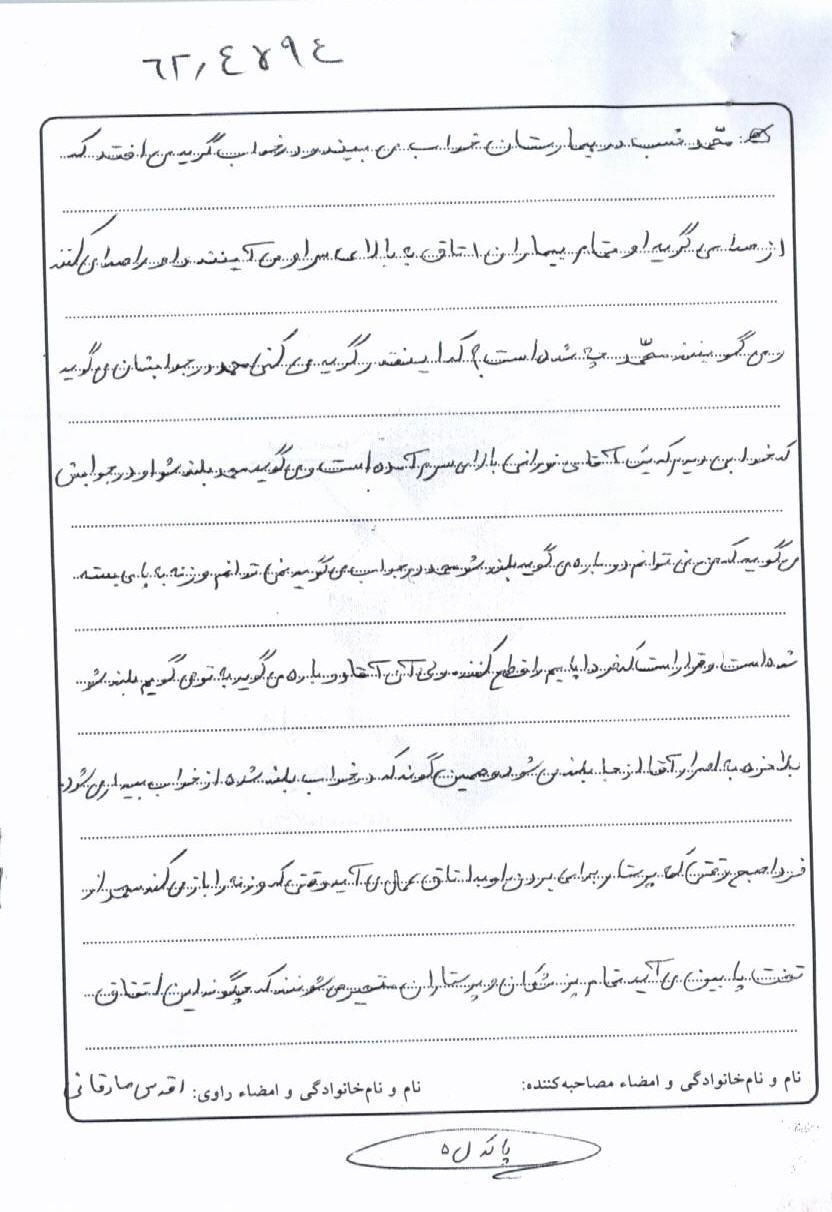 ٦٢,٤٧٩٤
محمّد شب در بیمارستان خواب می بیند و در خواب گریه می افتد که
از صدای گریه او تمام بیماران اتاق به بالای سر او می آیند و او را صدا می کنند
و می گویند محمّد چه شده است؟ که اینقدر گریه می کنی محمد در جوابشان می گوید
که خوابی دیدم که یک آقای نورانی بالای سرم آمده است و می گوید محمد بلند شو او در جوابش
می گوید که من نمی توانم دوباره می گوید بلند شو محمد در جواب می گوید نمی توانم وزنه به پایم بسته
شده است و قرار است که فردا پایم را قطع کنند. ولی آن آقا دوباره می گوید به تو می گویم بلند شو
بلاخره به اصرار آقا از جا بلند می شود و همین گونه که در خواب بلند شده از خواب بیدار می شود.
فردا صبح وقتی که پرستار برای بردن او به اتاق عمل می آید وقتی که وزنه را باز می کند محمد از
تخت پایین می آید تمام پزشکان و پرستاران متحیر می شوند که چگونه این اتفاق
نام و نام‌خانوادگی و امضاء مصاحبه‌کننده: نام و نام‌خانوادگی و امضاء راوی: اقدس صادقانی